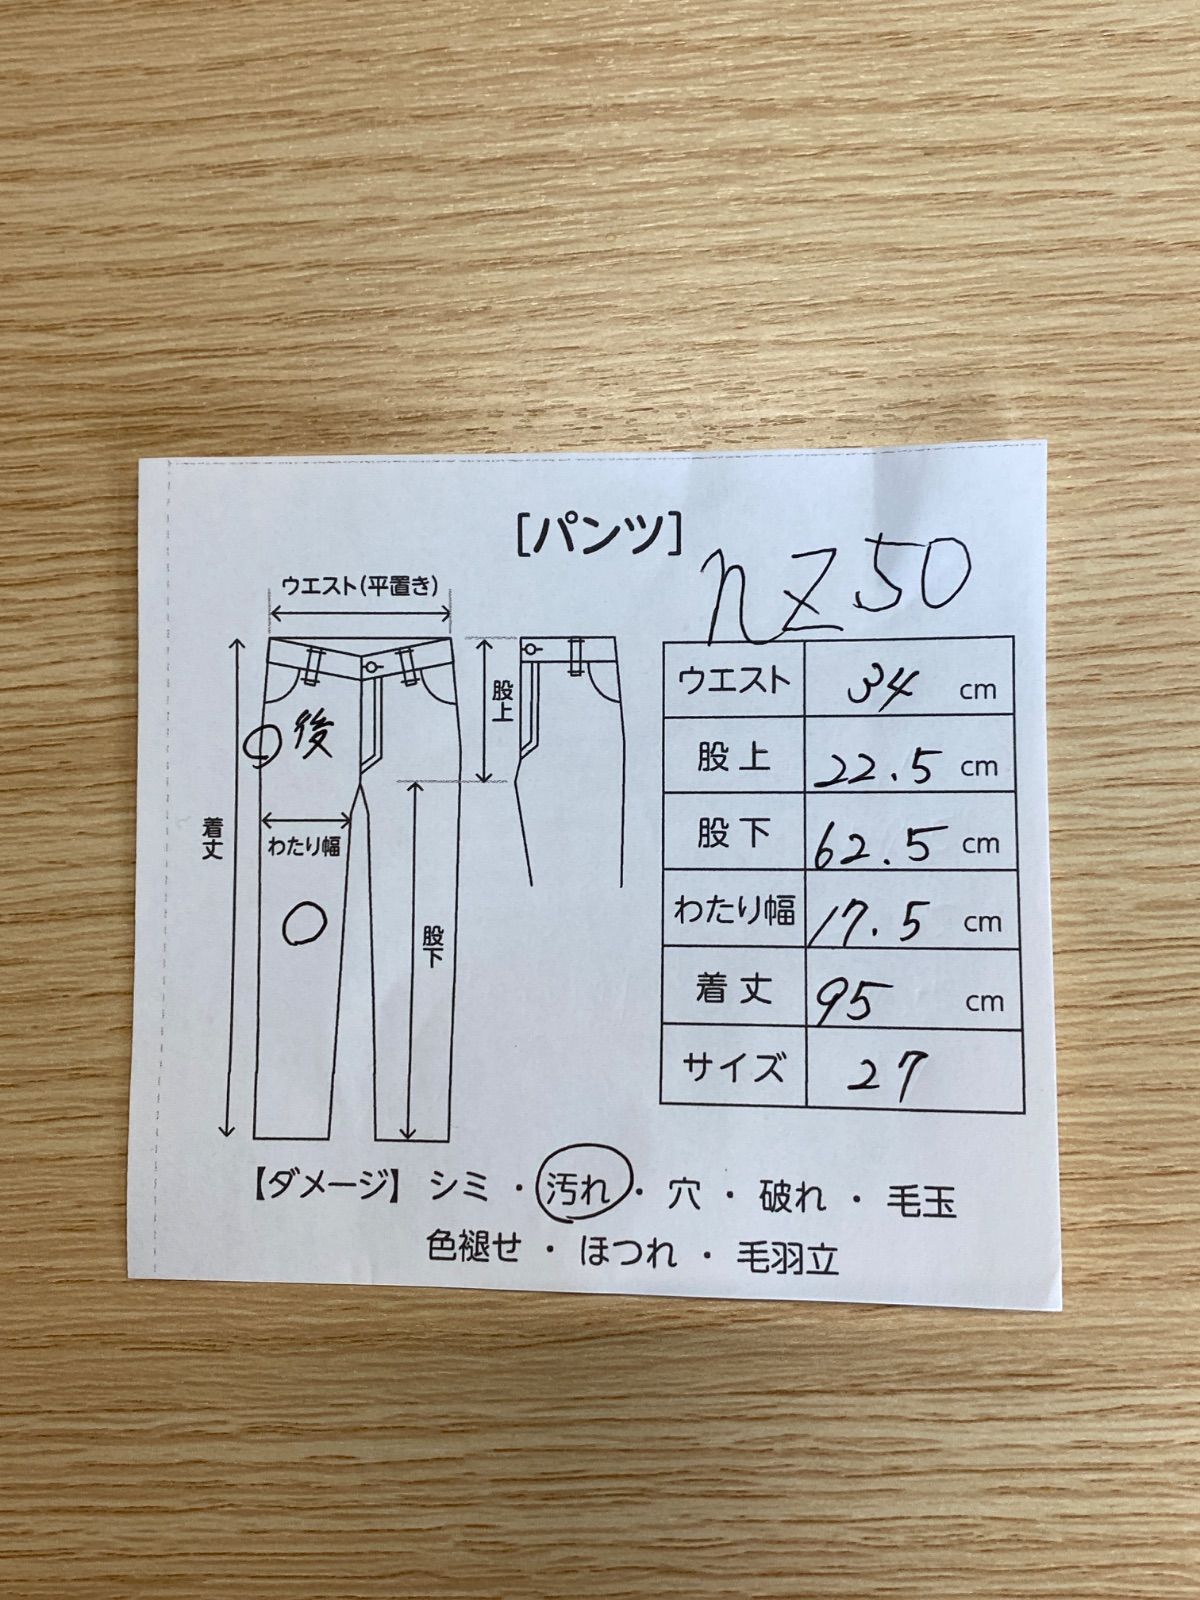 [パンツ]
nz50
ウエスト(平置き)
股上
後
着丈
わたり幅
股下
ウエスト 34 cm
股上 22.5 cm
股下 62.5 cm
わたり幅 17.5 cm
着丈 95 cm
サイズ 27
【ダメージ】 シミ ・ 汚れ ・ 穴 ・ 破れ ・ 毛玉
色褪せ ・ ほつれ ・ 毛羽立